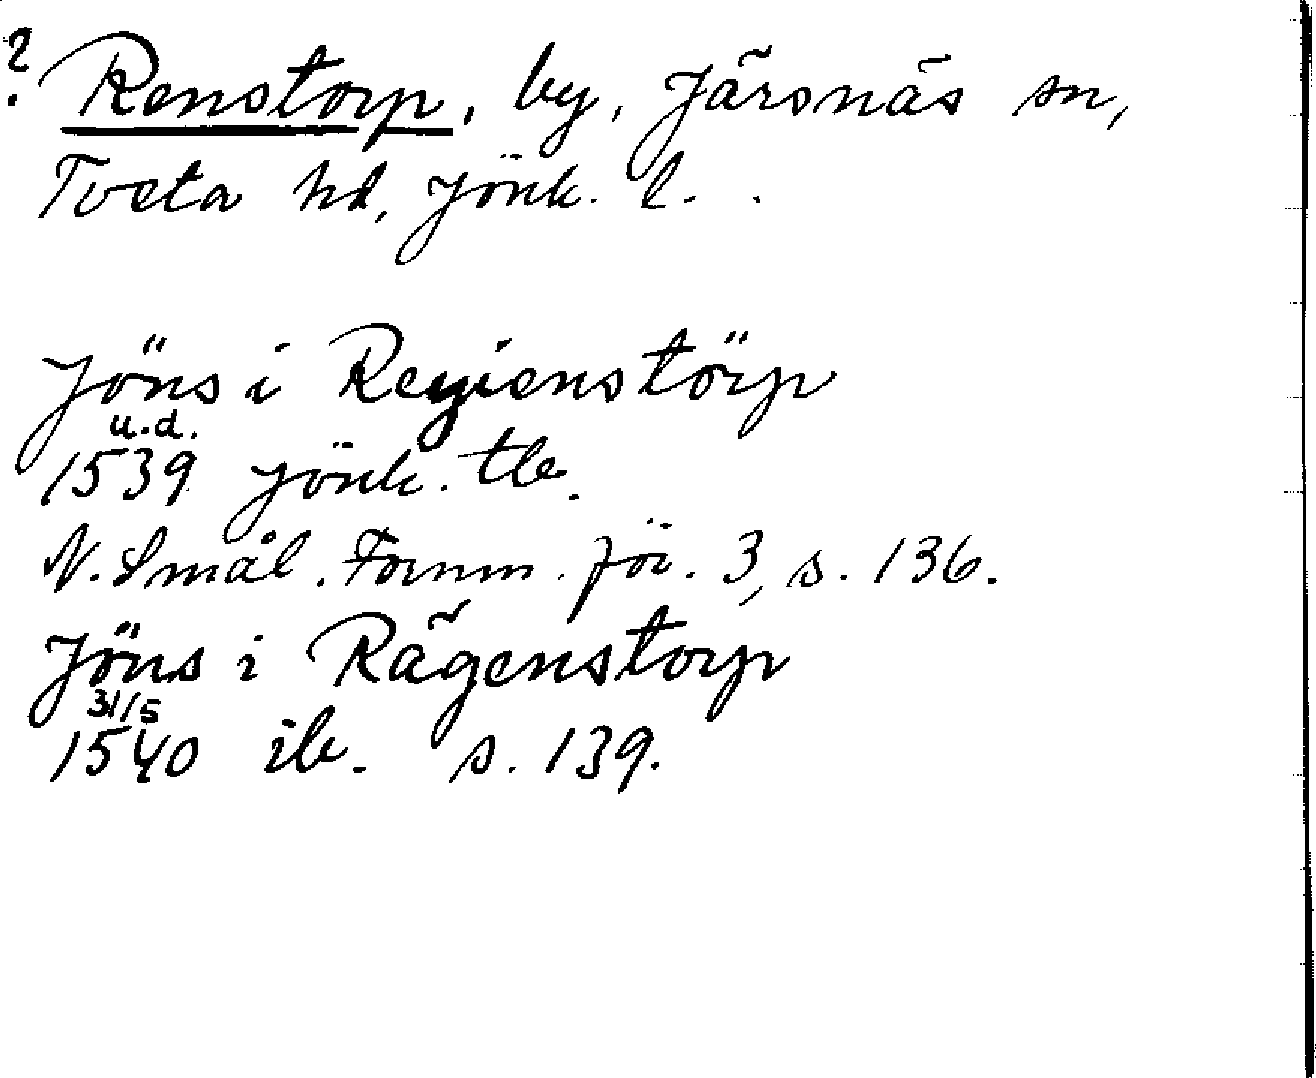 ? Renstorp, by, Järsnäs sn,
Tveta hd, Jönk. l.
Jöns i Regienstörp
u.d.
1539 Jönk. tb.
N. Smål. Fornm. för. 3, s. 136.
Jöns i Rägenstorp
31/5
1540 ib. s. 139.